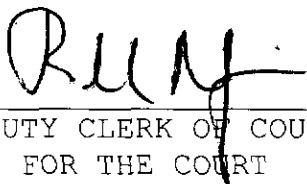 UTY CLERK OF COU
FOR THE COURT